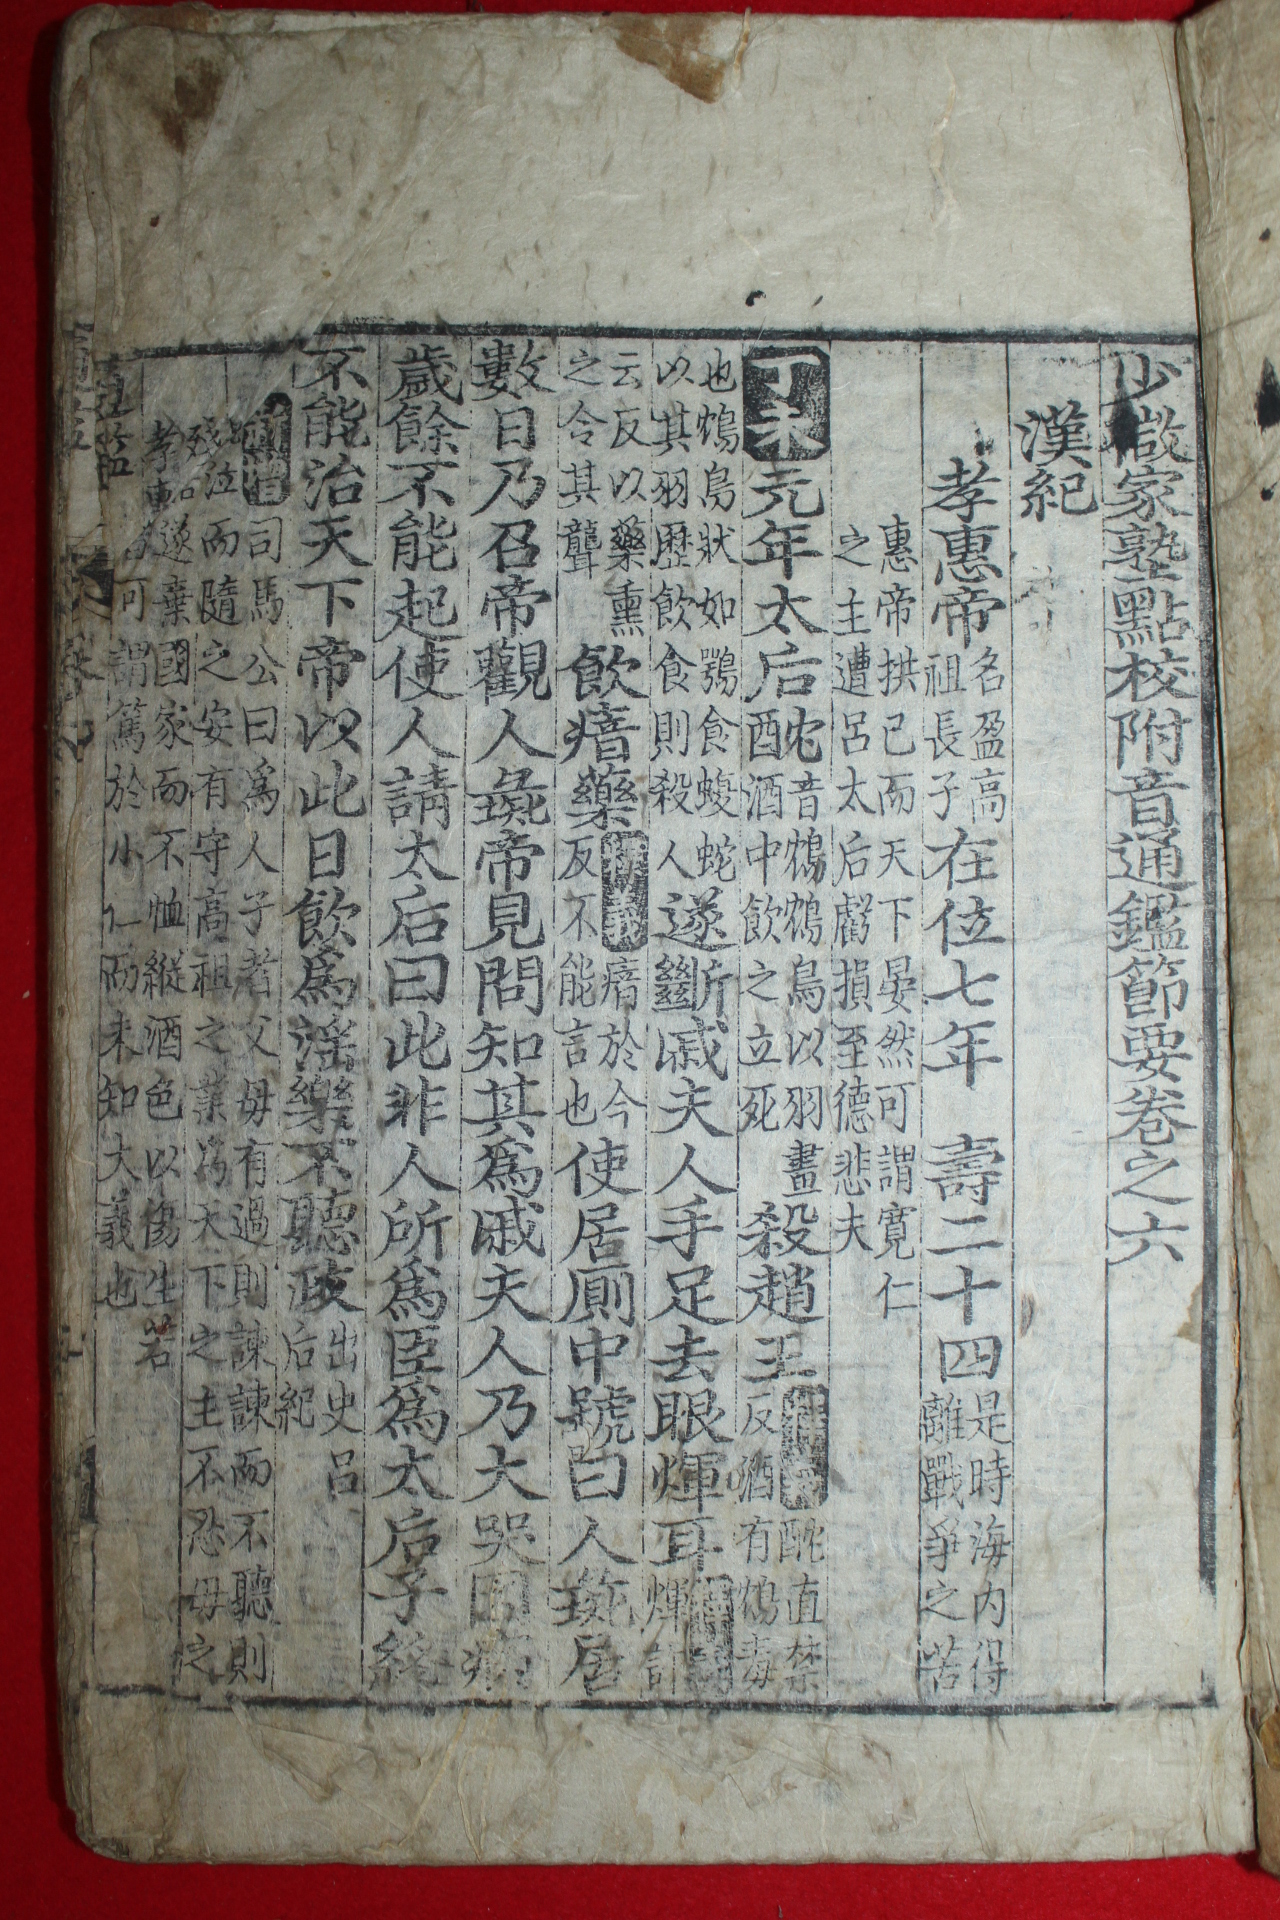 少微家塾點校附音通鑑節要卷之六
漢紀
孝惠帝 名盈高祖長子 在位七年 壽二十四 是時海内得離戰爭之苦
惠帝拱己而天下晏然可謂寬仁之主遭呂太后虧損至德悲夫
丁未 元年太后酖 音鴆鴆鳥以羽畫酒中飮之立死 殺趙王 酖直禁反酒有鴆毒
也鴆鳥狀如鶚食蝮蛇以其羽歷飮食則殺人 遂斷戚夫人手足去眼煇耳
云反以藥熏之令其聾 飮瘖藥 瘖於今反不能言也 使居厠中號曰人彘居
數日乃召帝觀人彘帝見問知其爲戚夫人乃大哭因病
歲餘不能起使人請太后曰此非人所爲臣爲太后子終
不能治天下帝以此日飮爲淫樂不聽政 出史呂后紀
司馬公曰爲人子者父母有過則諫諫而不聽則
泣而隨之安有守高祖之業爲天下之主不忍母之
殘遂棄國家而不恤縱酒色以傷生若
孝惠者可謂篤於小仁而未知大義也